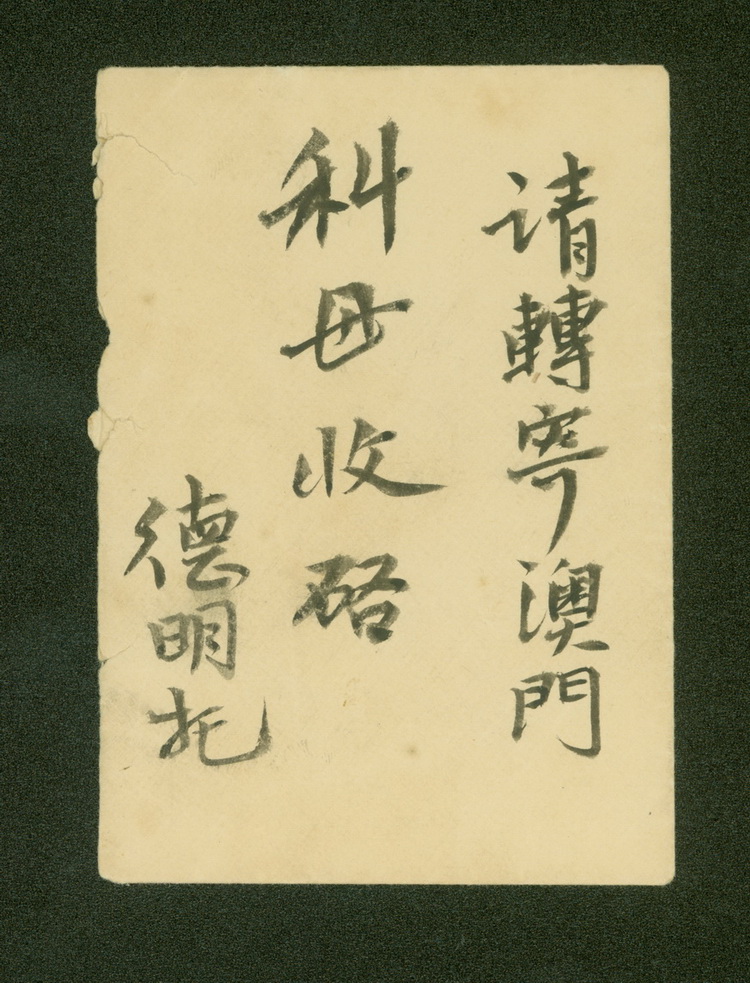 請轉寄澳門
科母收啓
德明托